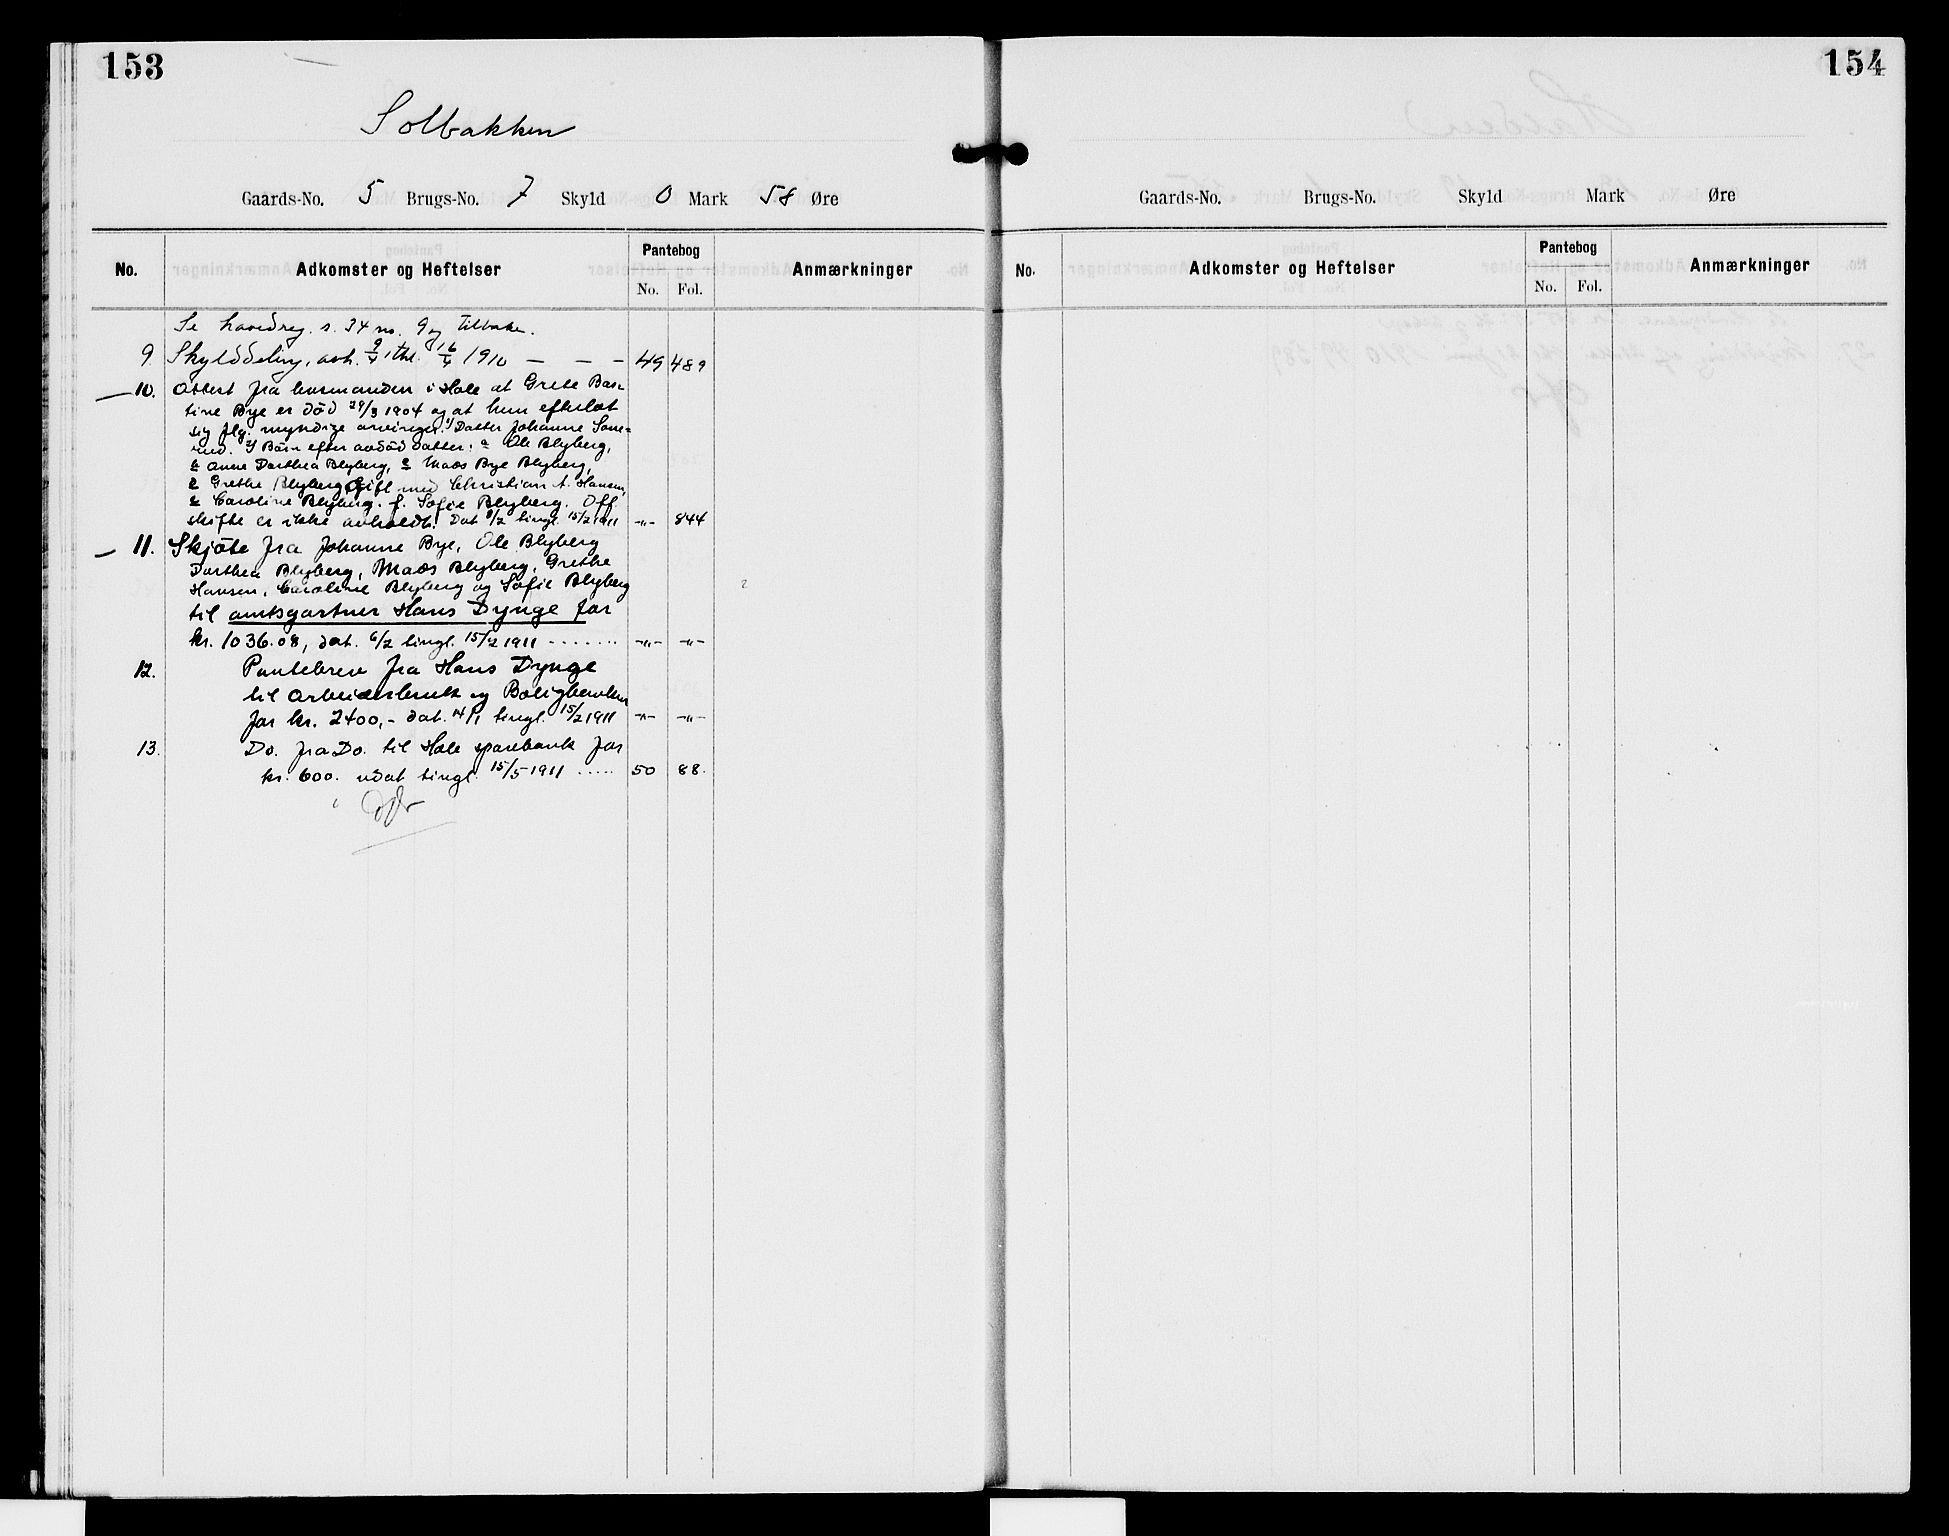 153
Solbakken
Gaards-No. 5 Brugs-No. 7 Skyld 0 Mark 58 Øre
No. Adkomster og Heftelser Pantebog Anmærkninger
No. Fol.
Se hovedreg. s. 34 no. 9 og tilbake.
9 Skylddeling, avh. 9/4 thl. 16/4 1910 — — — 49 489
10. Attest fra lensmanden i Hole at Grete Bas-
tine Bye er död 29/3 1904 og at hun efterlot
sig flg. myndige arvinger: 1) Datter Johanne
2) Börn efter avdöd datter: a Ole Blyberg,
b Anne Dorthea Blyberg, c Mads Bye Blyberg,
d Grethe Blyberg gift med Christian A. Hansen,
e Caroline Blyberg. f. Sofie Blyberg. Off.
skifte er ikke avholdt. Dat /2 tingl. 15/2 1911 -"- 844
11. Skjöte fra Johanne Bye, Ole Blyberg
Dorthea Blyberg, Mads Blyberg, Grethe
Hansen, Caroline Blyberg og Sofie Blyberg
til amtsgartner Hans Dynge for
kr. 1036.08, dat. 6/2 tingl. 15/2 1911 ....... -"- -"-
12. Pantebrev fra Hans Dynge
til Arbeiderbruk og Boligbanken
for kr. 2400,- dat. 14/1 tingl. 15/2 1911 -"- -"-
13. Do. fra Do. til Hole sparebank for
kr. 600. udat tingl. 15/5 1911 ..... 50 88.
154
Gaards-No. Brugs-No. Skyld Mark Øre
No. Adkomster og Heftelser Pantebog Anmærkninger
No. Fol.